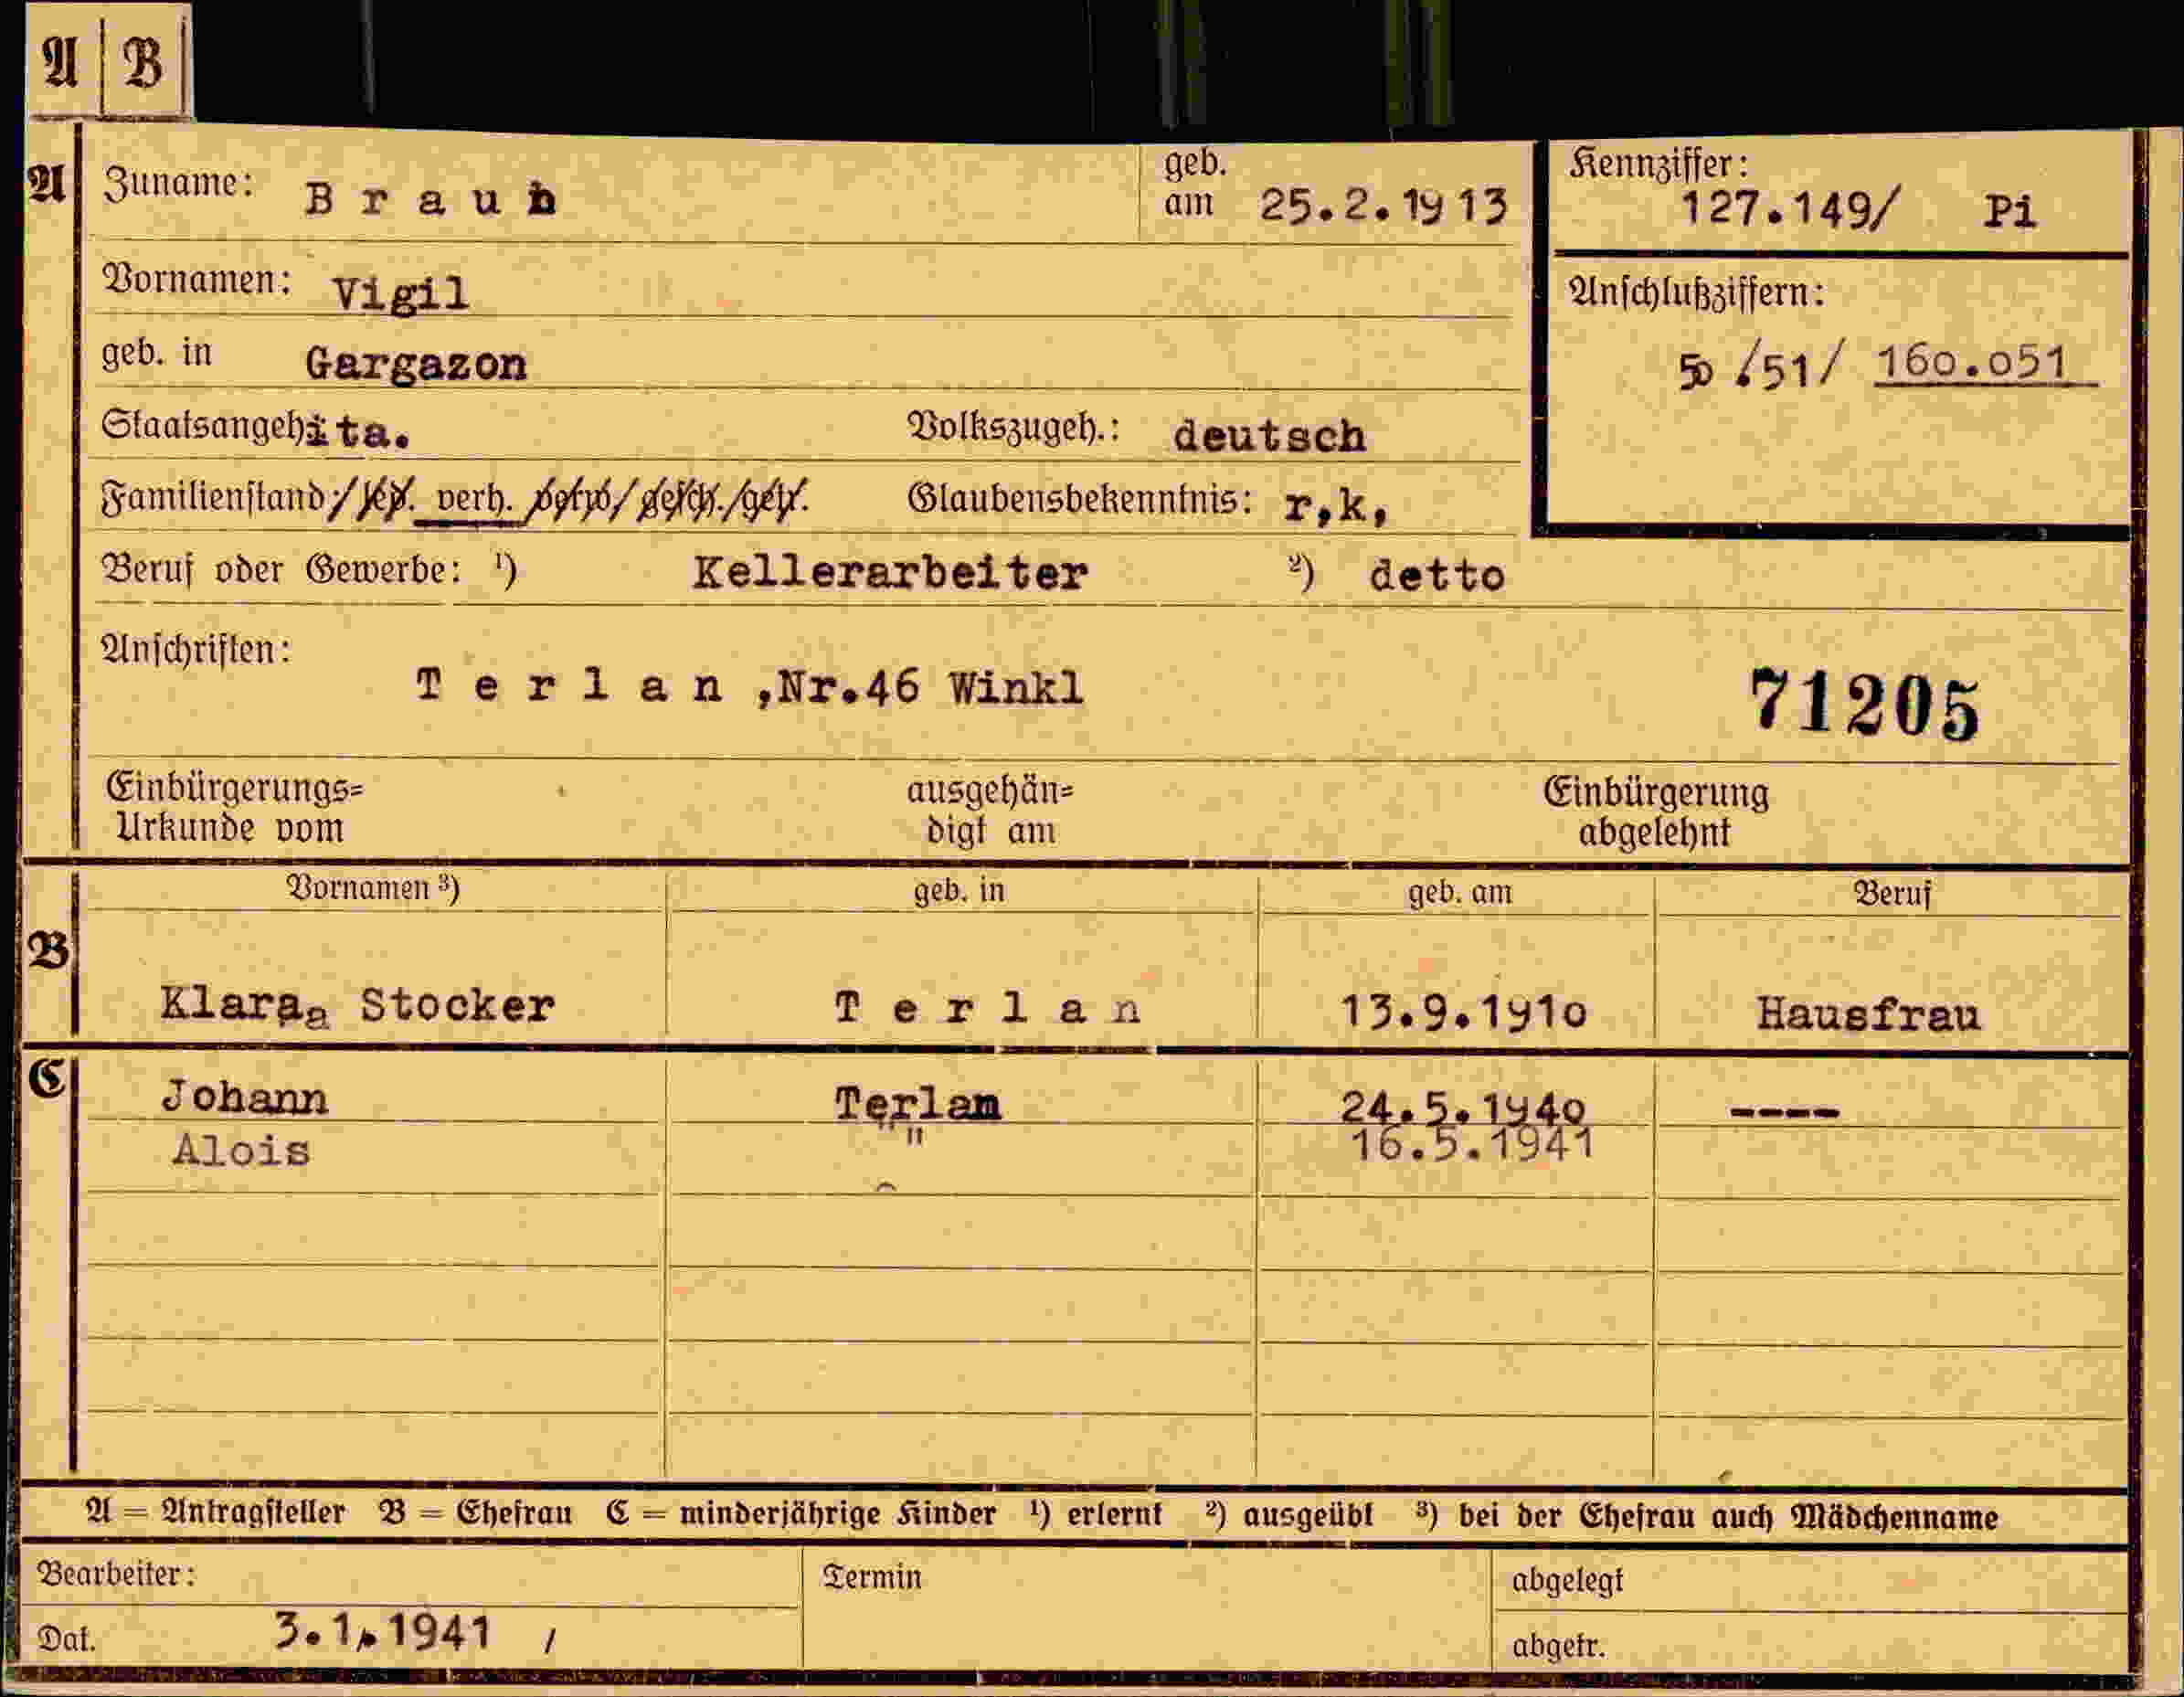 A B
A Zuname: Braun geb. am 25.2.1913 Kennziffer: 127.149/ Pi
Vornamen: Vigil
Anschlußziffern:
geb. in Gargazon 50 /51/ 160.051
Staatsangeh ita. Volkszugeh.: deutsch
Familienstand: led. verh. verw. gesch. getr. Glaubensbekenntnis: r,k,
Beruf oder Gewerbe: ¹) Kellerarbeiter ²) detto
Anschriften:
Terlan ,Nr.46 Winkl 71205
Einbürgerungs= ausgehän= Einbürgerung
Urkunde vom digt am abgelehnt
Vornamen ³) geb. in geb. am Beruf
B
Klaraa Stocker Terlan 13.9.1910 Hausfrau
C Johann Terlan 24.5.1940 ----
Alois " 16.5.1941
A = Antragsteller B = Ehefrau C = minderjährige Kinder ¹) erlernt ²) ausgeübt ³) bei der Ehefrau auch Mädchenname
Bearbeiter: Termin abgelegt
Dat. 3.1.1941 / abgetr.